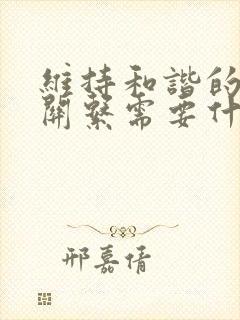 維持和諧的
關繫需要什
邢嘉倩